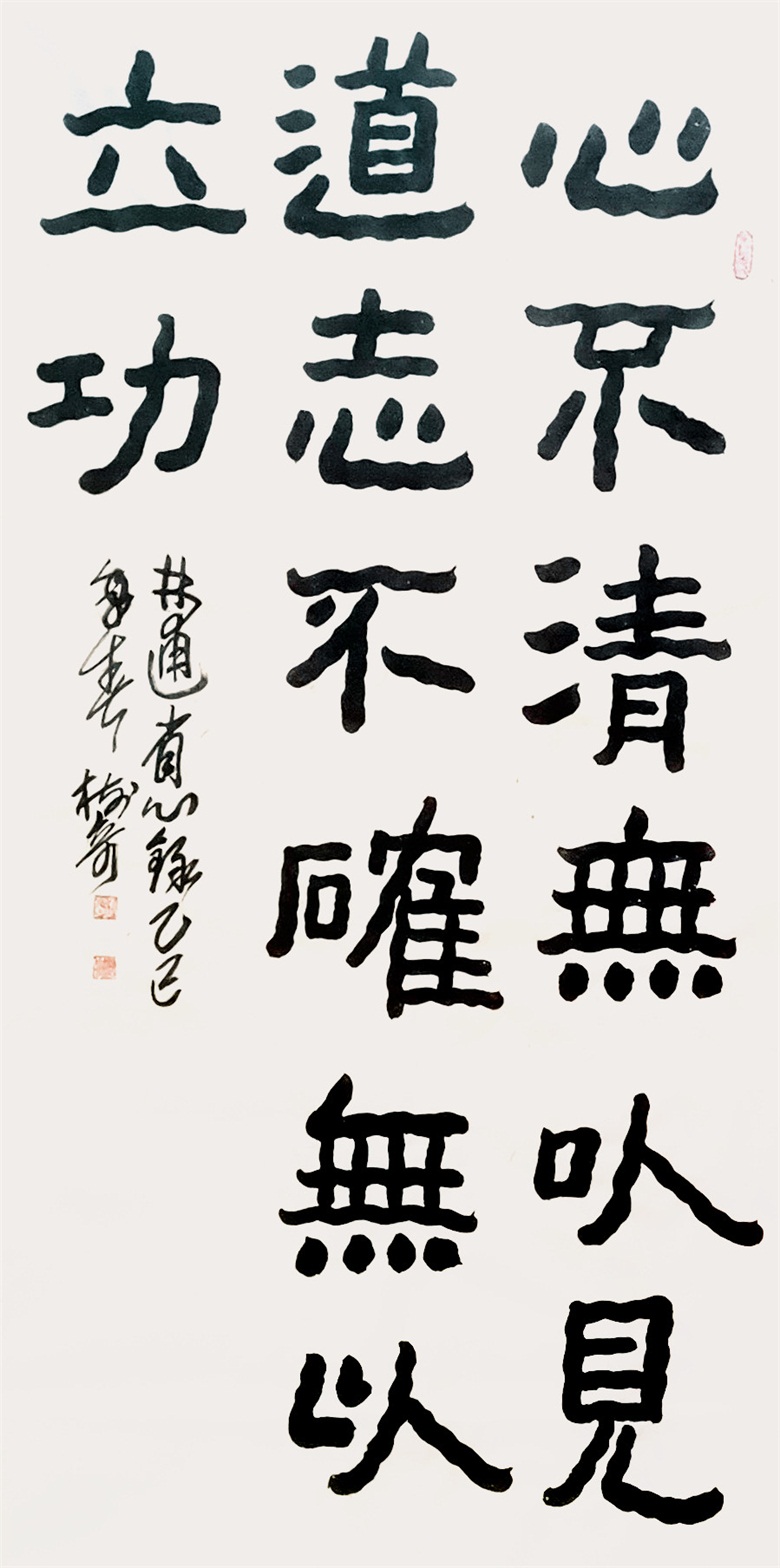 心不清無以見
道志不確無以
立功
林逋省心錄乙巳
樹奇